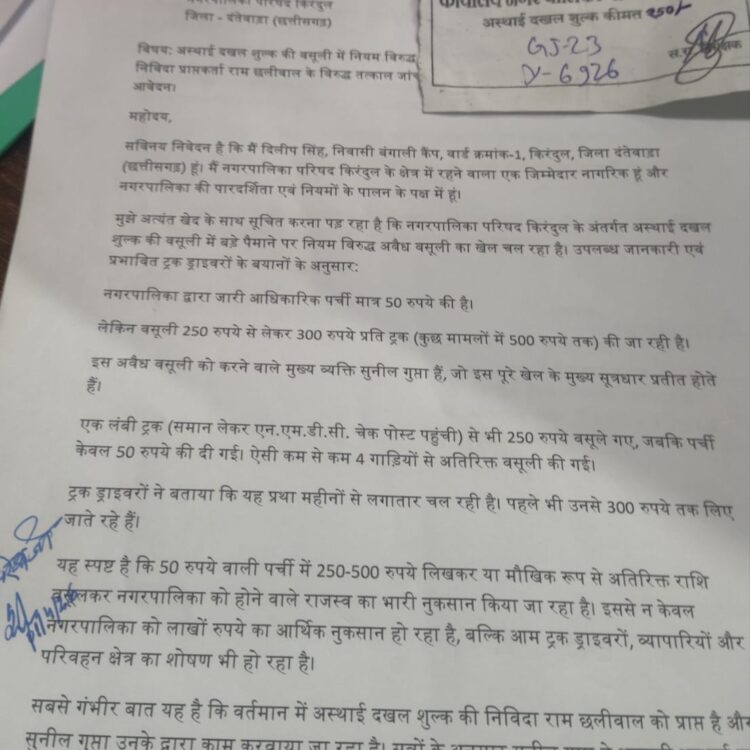 नगरपालिका परिषद किरंदुल
जिला - दंतेवाड़ा (छत्तीसगढ़)
कार्यालय नगर
अस्थाई दखल शुल्क कीमत 250/-
GJ-23
Y-6926
विषय: अस्थाई दखल शुल्क की वसूली में नियम विरुद्ध
निविदा प्राप्तकर्ता राम छलीवाल के विरुद्ध तत्काल जांच
आवेदन।
महोदय,
सविनय निवेदन है कि मैं दिलीप सिंह, निवासी बंगाली कैंप, वार्ड क्रमांक-1, किरंदुल, जिला दंतेवाड़ा
(छत्तीसगढ़) हूं। मैं नगरपालिका परिषद किरंदुल के क्षेत्र में रहने वाला एक जिम्मेदार नागरिक हूं और
नगरपालिका की पारदर्शिता एवं नियमों के पालन के पक्ष में हूं।
मुझे अत्यंत खेद के साथ सूचित करना पड़ रहा है कि नगरपालिका परिषद किरंदुल के अंतर्गत अस्थाई दखल
शुल्क की वसूली में बड़े पैमाने पर नियम विरुद्ध अवैध वसूली का खेल चल रहा है। उपलब्ध जानकारी एवं
प्रभावित ट्रक ड्राइवरों के बयानों के अनुसार:
नगरपालिका द्वारा जारी आधिकारिक पर्ची मात्र 50 रुपये की है।
लेकिन वसूली 250 रुपये से लेकर 300 रुपये प्रति ट्रक (कुछ मामलों में 500 रुपये तक) की जा रही है।
इस अवैध वसूली को करने वाले मुख्य व्यक्ति सुनील गुप्ता हैं, जो इस पूरे खेल के मुख्य सूत्रधार प्रतीत होते
हैं।
एक लंबी ट्रक (समान लेकर एन.एम.डी.सी. चेक पोस्ट पहुंची) से भी 250 रुपये वसूले गए, जबकि पर्ची
केवल 50 रुपये की दी गई। ऐसी कम से कम 4 गाड़ियों से अतिरिक्त वसूली की गई।
ट्रक ड्राइवरों ने बताया कि यह प्रथा महीनों से लगातार चल रही है। पहले भी उनसे 300 रुपये तक लिए
जाते रहे हैं।
यह स्पष्ट है कि 50 रुपये वाली पर्ची में 250-500 रुपये लिखकर या मौखिक रूप से अतिरिक्त राशि
वसूलकर नगरपालिका को होने वाले राजस्व का भारी नुकसान किया जा रहा है। इससे न केवल
नगरपालिका को लाखों रुपये का आर्थिक नुकसान हो रहा है, बल्कि आम ट्रक ड्राइवरों, व्यापारियों और
परिवहन क्षेत्र का शोषण भी हो रहा है।
सबसे गंभीर बात यह है कि वर्तमान में अस्थाई दखल शुल्क की निविदा राम छलीवाल को प्राप्त है और
सुनील गुप्ता उनके द्वारा काम करवाया जा रहा है।